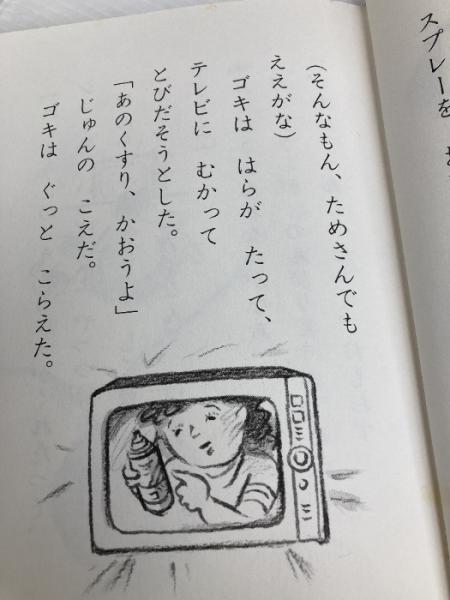 スプレーを
(そんなもん、ためさんでも
ええがな)
ゴキは はらが たって、
テレビに むかって
とびだそうとした。
「あのくすり、かおうよ」
じゅんの こえだ。
ゴキは ぐっと こらえた。